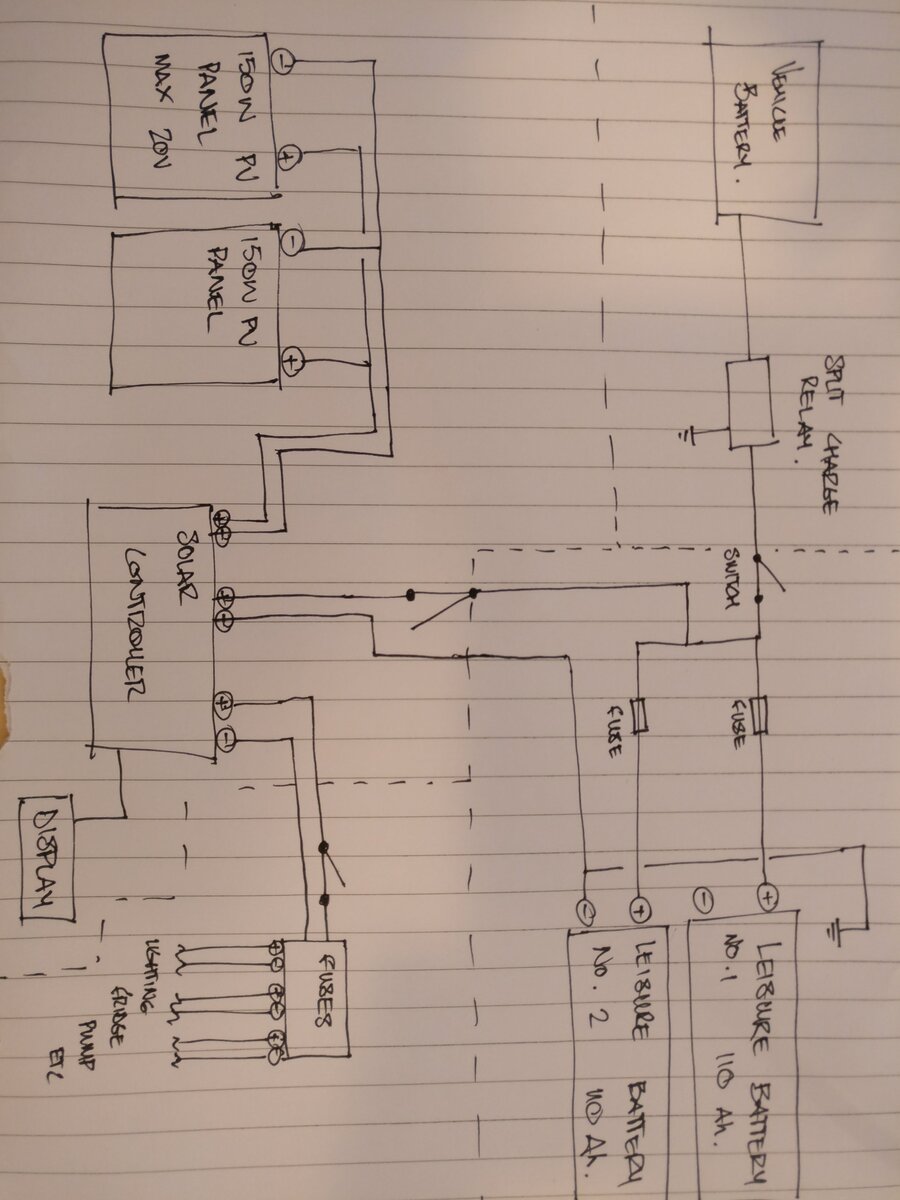 VEHICLE
BATTERY.
SPLIT CHARGE
RELAY.
SWITCH
FUSE
FUSE
+
-
LEISURE BATTERY
NO.1 110 Ah.
+
-
LEISURE BATTERY
NO. 2 110 Ah.
-
+
150W PV
PANEL
MAX 20V
-
+
150W PV
PANEL
+
+
+
+
+
-
SOLAR
CONTROLLER
DISPLAY
FUSES
+ -
+ -
+ -
LIGHTING
FRIDGE
PUMP
ETC